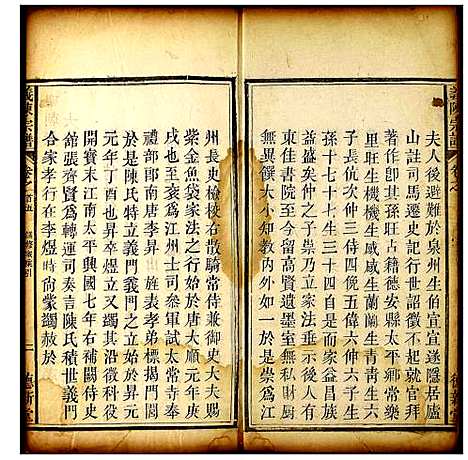 夫人後避難於泉州生伯宣宣遂隱居廬
山註司馬遷史記行世詔徵不起就官拜
庫佐其卽其孫旺占籍德安縣太平鄉常樂
里旺生機機生感感生蘭蘭生青青生六
子長伉次仲三侍四俛五儉六伸一十五
孫十七十七生三十四自是而家益昌族
益盛矣仲之子崇乃立家法垂示後人有
書佳齋至今留高賢遺墨室無私厨
無異饌大小知教內外如一於是崇爲江
州長史檢校右散騎常侍兼御史大夫賜
紫金魚袋家法之行始於唐大順元年庚
戌也至袞爲江州士司參軍試太常寺奉
禮郎郎南唐李昇 旌表孝弟標揭義門
於是陳氏特立義門義門之立始於昇元
元年丁酉也昇卒煜立又蠲其沿徵科役
開寶末江南太平興國七年右補闕侍史
舘張齊賢爲轉運司奏言陳氏積世義門
合家孝行在李煜時尙蒙蠲赦於
義陳宗譜
卷之首五
二
德新堂